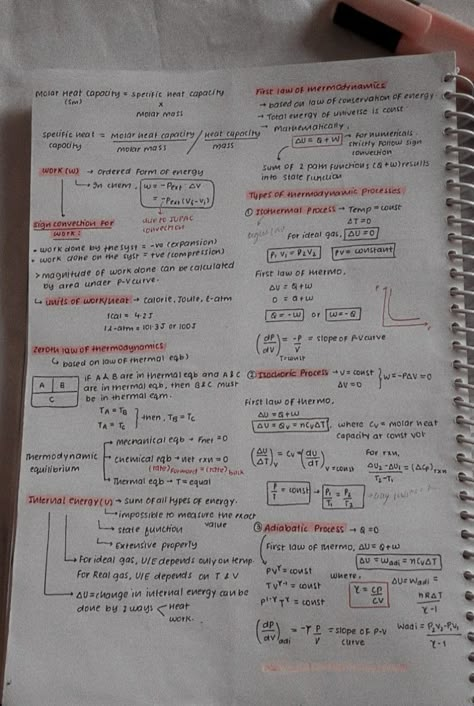 Molar Heat Capacity = specific heat capacity
(Sm) x
Molar mass
specific heat = Molar heat capacity / Heat capacity
capacity Molar mass mass
Work (W) → ordered form of energy
→ In chem, W = -Pext · ΔV
= -Pext (V₂-V₁)
due to IUPAC
convection
Sign convection for
work:
• work done by the syst = -ve (expansion)
• work done on the syst = +ve (compression)
> magnitude of work done can be calculated
by area under P-V curve.
↳ units of work/heat → calorie, Joule, l-atm
1 cal = 4.2 J
1 l-atm = 101.3 J or 100 J
Zeroth law of thermodynamics
↳ based on law of thermal eqb)
A B
C
if A & B are in thermal eqb and A & C
are in thermal eqb, then B & C must
be in thermal eqm.
TA = TB
TA = TC } then, TB = TC
Thermodynamic
equilibrium
→ mechanical eqb → Fnet = 0
→ chemical eqb → net rxn = 0
(rate)forward = (rate)back
→ Thermal eqb → T = equal
Internal energy (U) → sum of all types of energy.
→ impossible to measure the exact
value
→ state function
→ Extensive property
→ For ideal gas, U/E depends only on temp
For Real gas, U/E depends on T & V
→ ΔU = change in internal energy can be
done by 2 ways < Heat
work.
First law of thermodynamics
→ based on law of conservation of energy
→ Total energy of universe is const.
→ Mathematically,
ΔU = Q + W → for numericals
strictly follow sign
convection
sum of 2 path functions (Q+W) results
into state function
Types of thermodynamic processes
① Isothermal Process → Temp = const
ΔT = 0
For ideal gas, ΔU = 0
P₁V₁ = P₂V₂ PV = constant
First law of thermo,
ΔU = Q + W
0 = Q + W
Q = -W or W = -Q
P
V
(dP/dV) = -P/V = slope of P-V curve
② Isochoric Process → V = const
ΔV = 0 } W = -PΔV = 0
First law of thermo,
ΔU = Q + W
ΔU = Qv = nCvΔT, where Cv = molar heat
capacity at const vol
(ΔU/ΔT)v = Cv = (dU/dT) V = const
For rxn,
ΔU₂ - ΔU₁ / T₂ - T₁ = (ΔCv)rxn
P/T = const → P₁/T₁ = P₂/T₂
③ Adiabatic Process → Q = 0
First law of thermo, ΔU = Q + W
ΔU = Wadi = nCvΔT
PV^γ = const
TV^γ-1 = const
P^1-γ T^γ = const
where,
γ = CP/CV
ΔU = Wadi =
nRΔT
γ-1
(dP/dV)adi = -γ P/V = slope of P-V
curve
Wadi = P₂V₂ - P₁V₁
γ-1